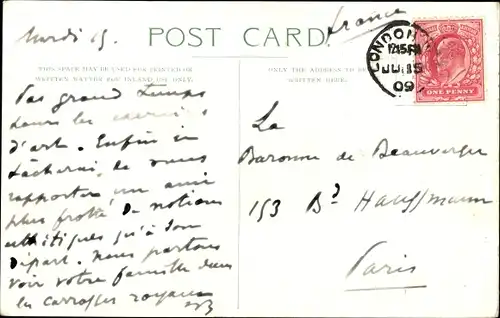 Mardi 15.
POST CARD.
France
THIS SPACE MAY BE USED FOR PRINTED OR
WRITTEN MATTER FOR INLAND USE ONLY.
THE ADDRESS TO BE
WRITTEN HERE.
LONDON
JU 15
09
ONE PENNY
Pas grand temps
pour les
d'art. Enfin je
tâcherai de vous
rapporter un ami
plus frotté de notions
esthétiques qu'à son
départ. Nous partons
voir votre famille dans
les carrosses royaux
La
Baronne de Beauverger
153 Bd Haussmann
Paris